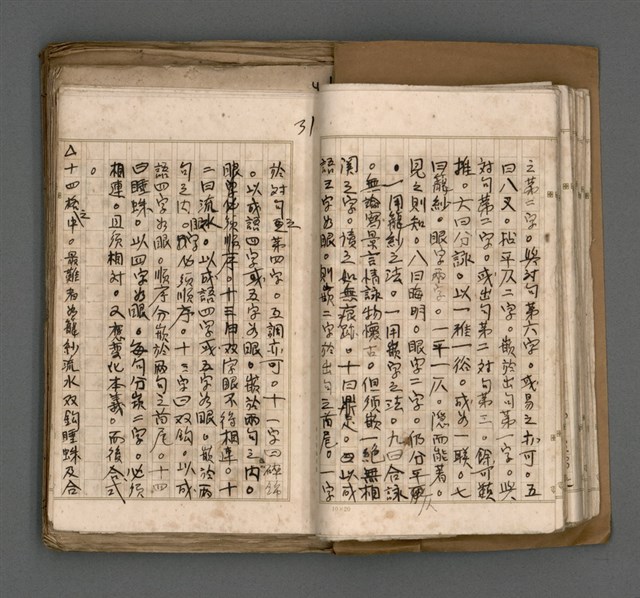 之第二字。與對句第六字。或易之亦可。五
曰八叉。拈平仄二字。嵌於出句第一字。與
對句第二字。或出句第二對句第三。餘可類
推。六曰分詠。以一雅一俗。成為一聯。七
曰籠紗。眼字兩字。一平一仄。隱而能著。
見之則知。八曰晦明。眼字二字。仍分平仄
。一用籠紗之法。一用嵌字之法。九曰合詠
。無論寫景言情詠物懷古。但須嵌一絕無相
關之字。讀之如無痕跡。十曰鼎足。四以成
語三字為眼。則嵌二字於出句之首尾。一字
31
於對句之第四字。五調亦可。十一字曰碎錦
。以成語四字或五字為眼。嵌於兩句之內。
眼單他須順序。十三用双字眼不得相連。十
二曰流水。以成語四字或五字為眼。嵌於兩
句之內。眼字必須順序。十三字曰双鈎。以成
語四字為眼。順序分嵌於兩句之首尾。十四
曰睡蛛。以四字為眼。每句分嵌二字。必須
相連。且須相對。又想變化本義。而後合式
。
△十四格之中。最難者為籠紗流水双鈎睡蛛及合